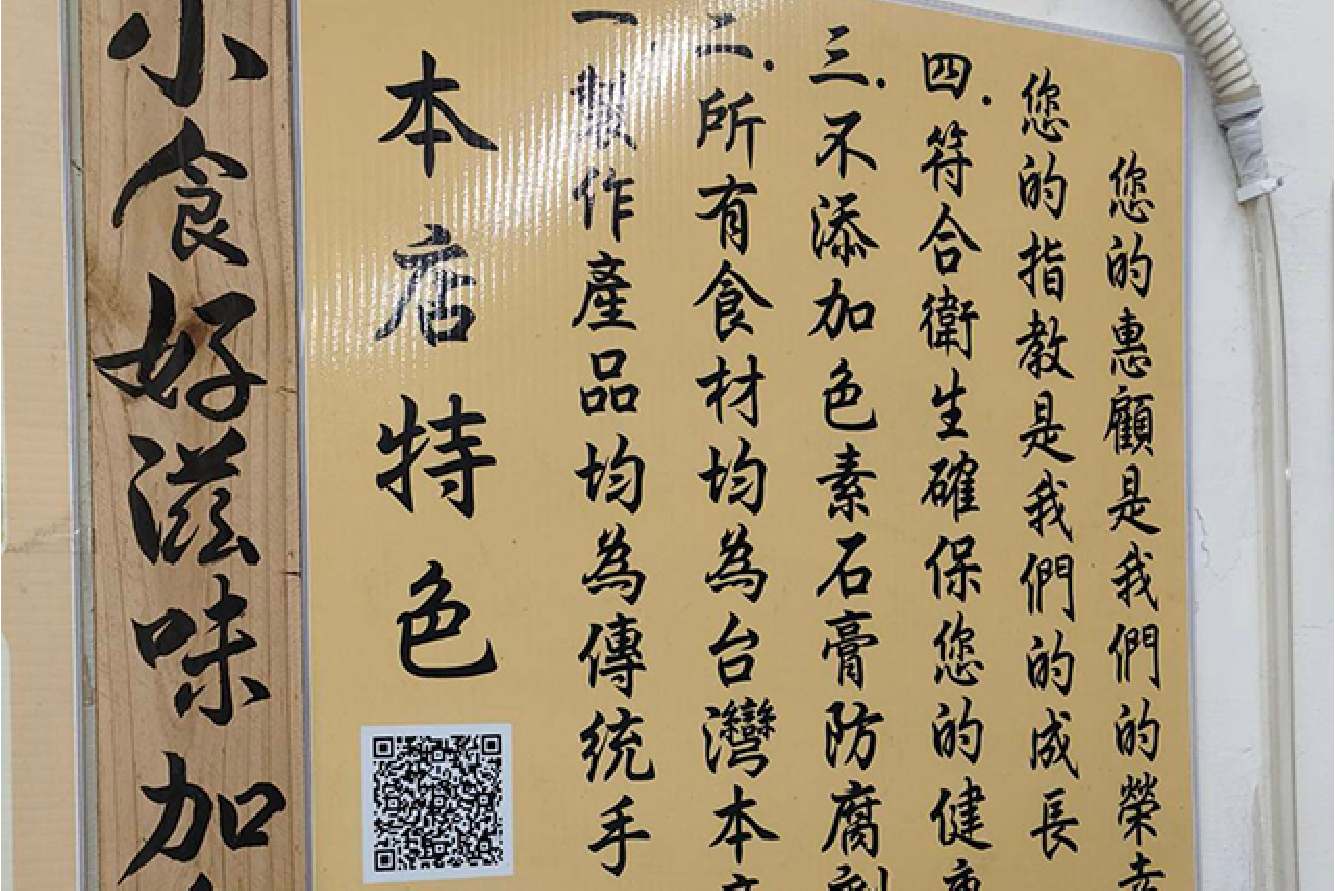 小食好滋味加
本店特色
一.製作產品均為傳統手
二.所有食材均為台灣本
三.不添加色素石膏防腐
四.符合衛生確保您的健
您的指教是我們的成長
您的惠顧是我們的榮